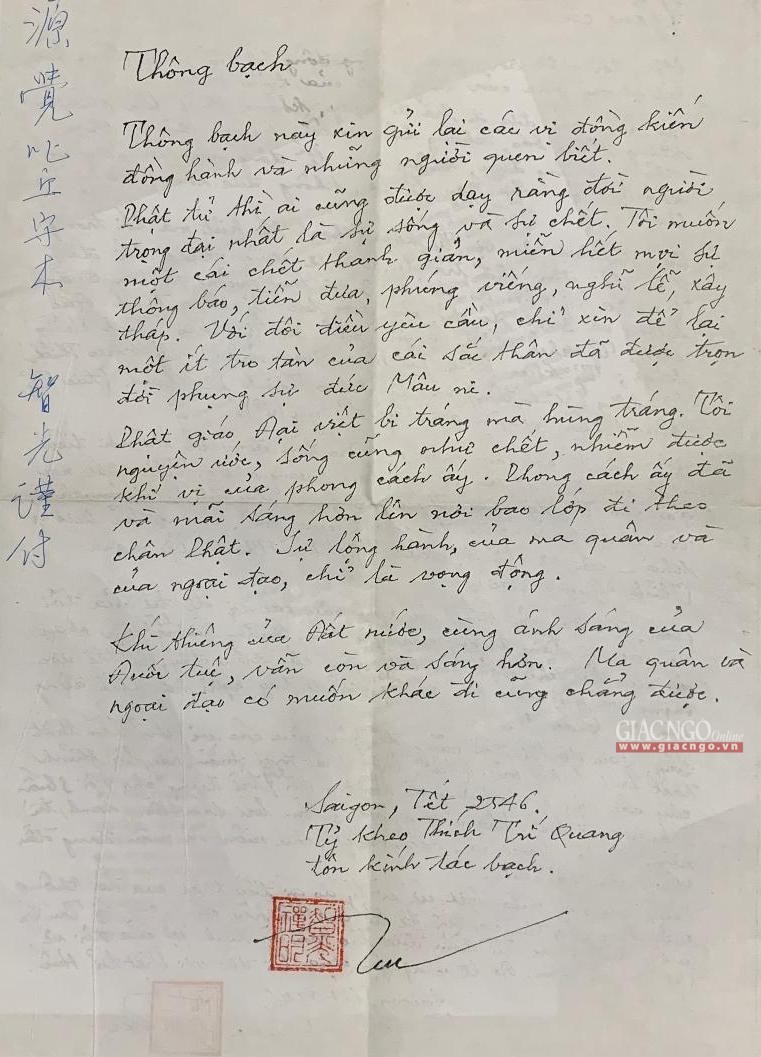 Thông bạch
Thông bạch này xin gửi lại các vị đồng kiến
đồng hành và những người quen biết.
Phật tử thì ai cũng được dạy rằng đời người
trọng đại nhất là sự sống và sự chết. Tôi muốn
một cái chết thanh giản, miễn hết mọi sự
thông báo, tiễn đưa, phúng viếng, nghi lễ, xây
tháp. Với đôi điều yêu cầu, chỉ xin để lại
một ít tro tàn của cái sắc thân đã được trọn
đời phụng sự đức Mâu ni.
Phật giáo Đại việt bi tráng mà hùng tráng. Tôi
nguyện ước, sống cũng như chết, nhiễm được
khí vị của phong cách ấy. Phong cách ấy đã
và mãi sáng hơn lên nơi bao lớp đi theo
chân Phật. Sự lộng hành, của ma quân và
của ngoại đạo, chỉ là vọng động.
Khí thiêng của Đất nước, cùng ánh sáng của
Đuốc tuệ, vẫn còn và sáng hơn. Ma quân và
ngoại đạo có muốn khác đi cũng chẳng được.
Saigon, Tết 2546.
Tỷ kheo Thích Trí Quang
tôn kính tác bạch.
源覺比丘守本 智光謹付
GIACNGO Online
www.giacngo.vn